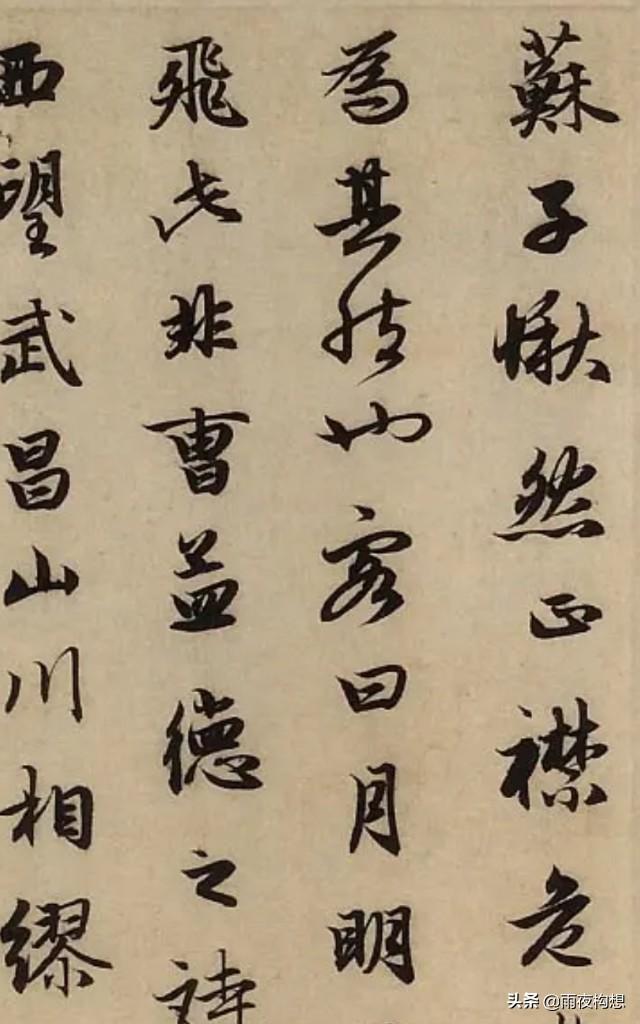 蘇子愀然正襟危
為其然也客曰月明
飛此非曹益德之詩
西望武昌山川相繆
头条 @雨夜构想